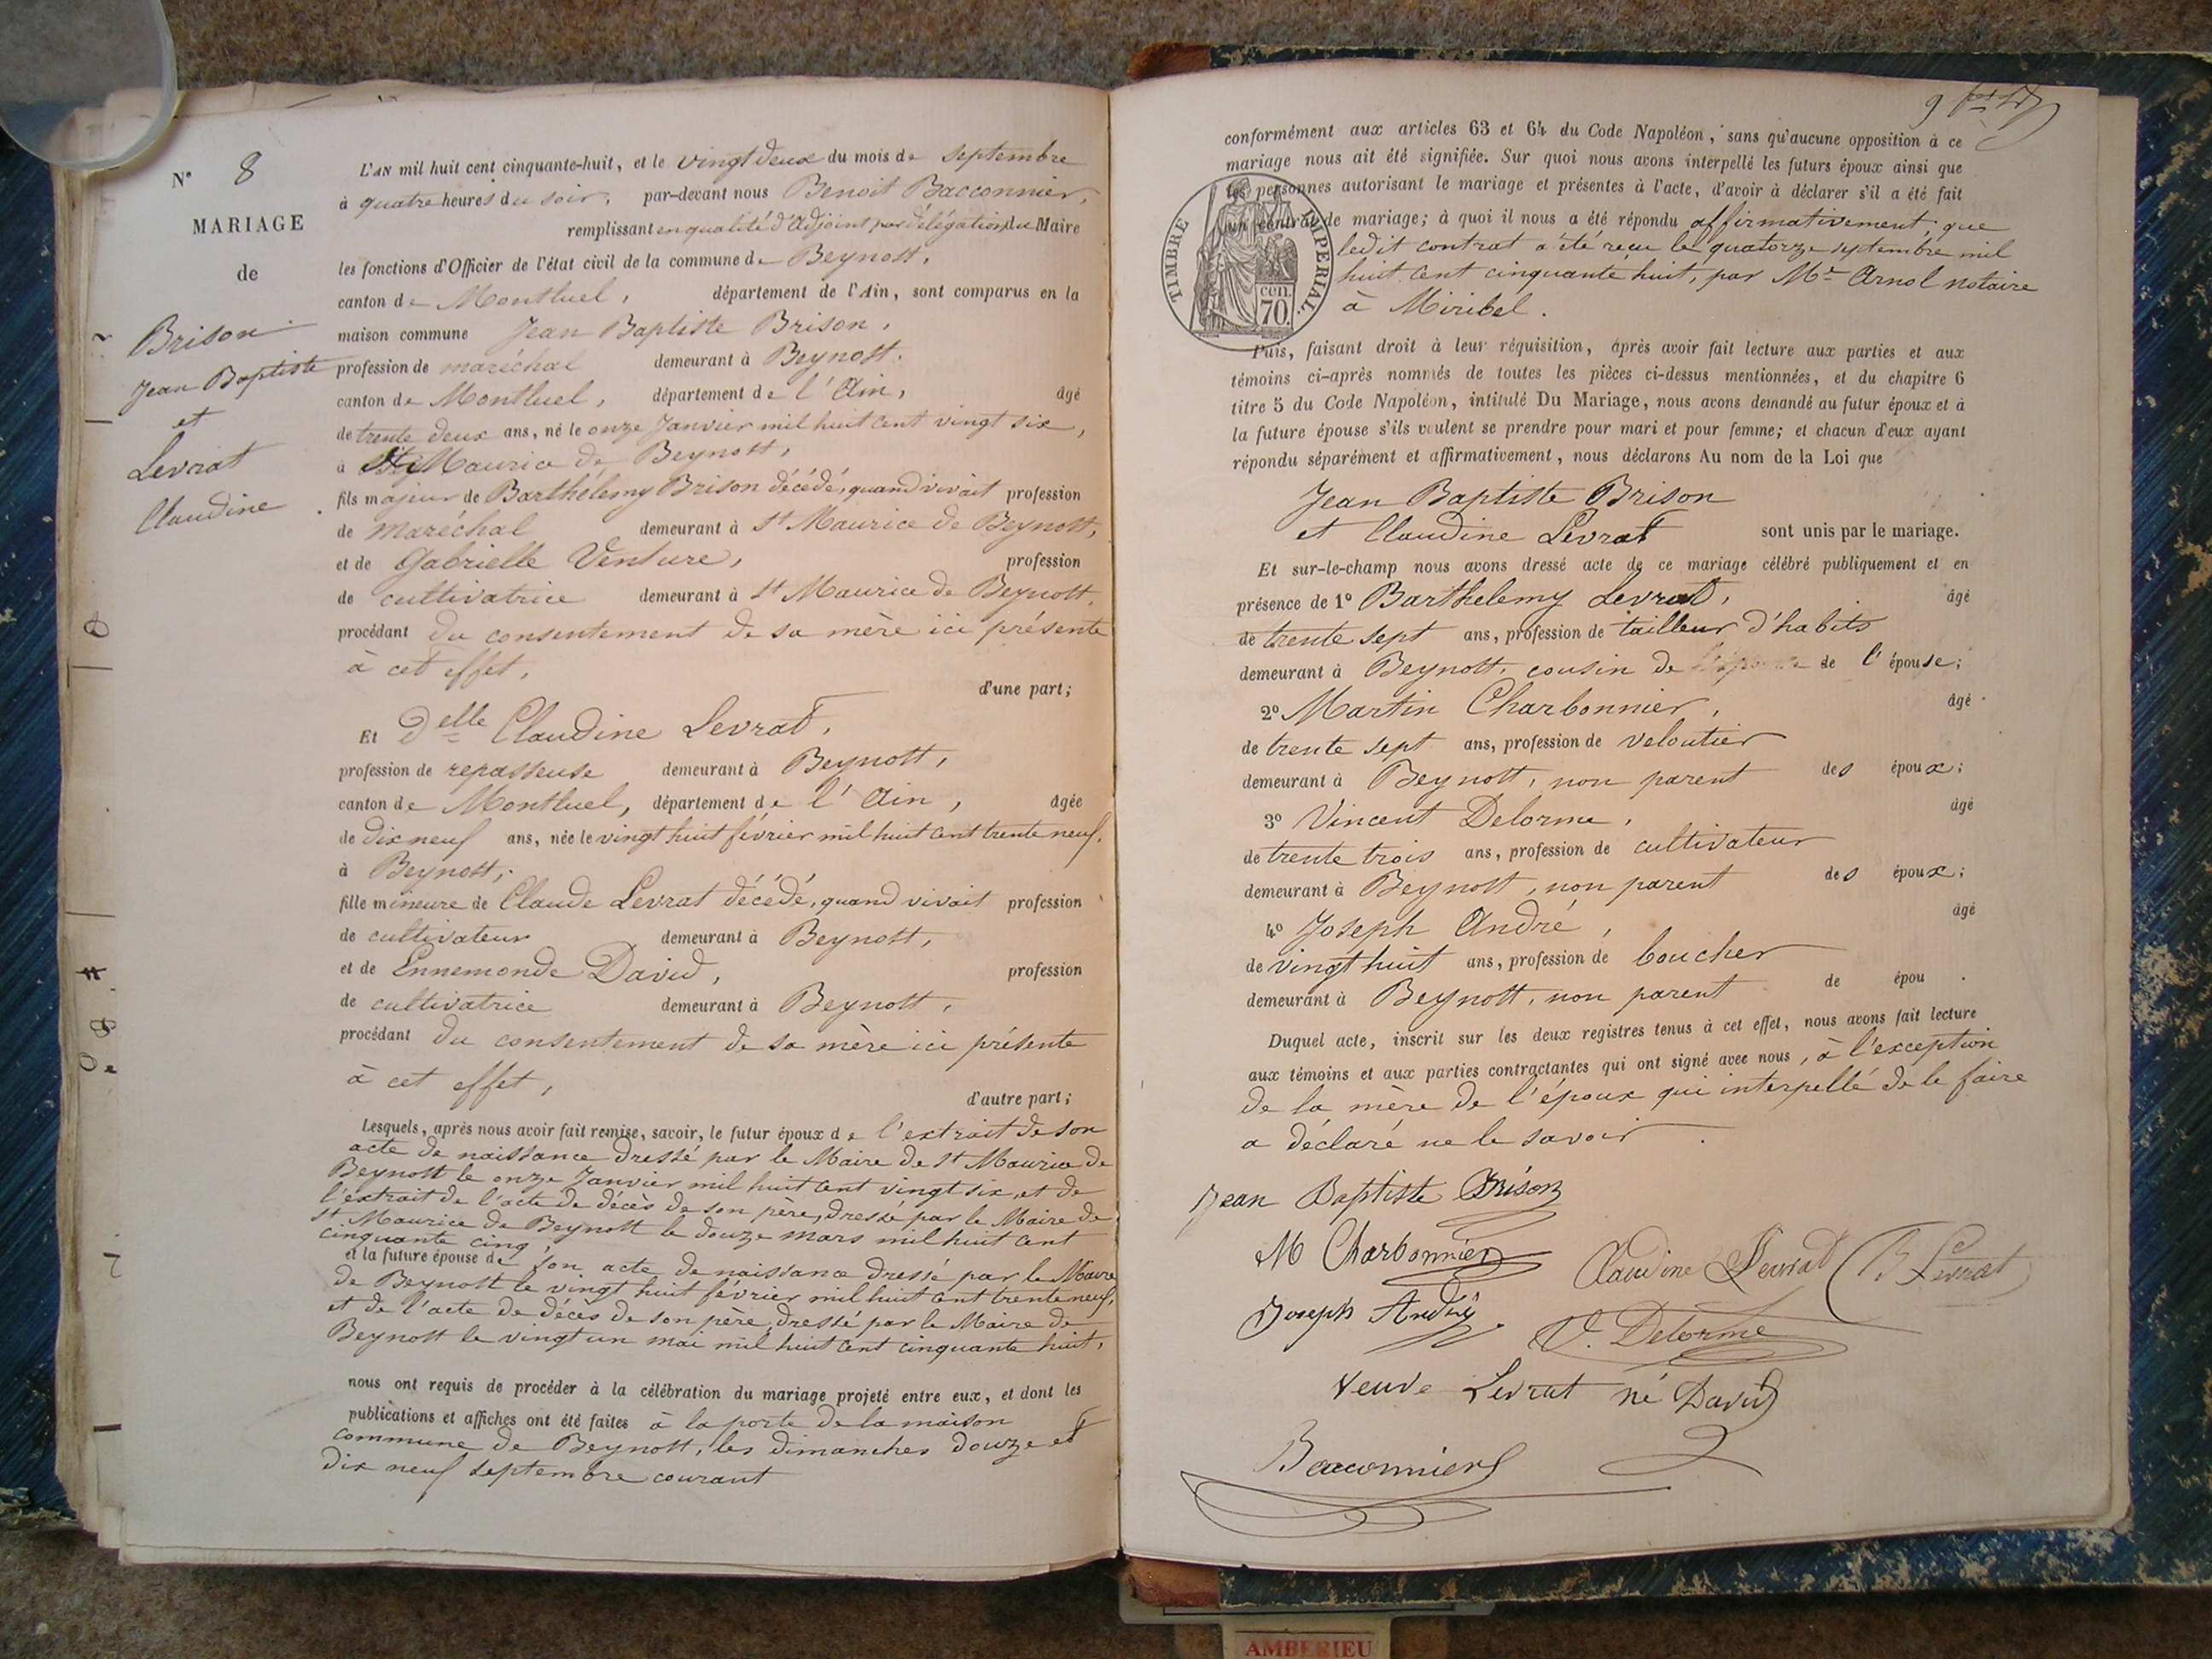 N° 8
MARIAGE
de
Brison
Jean Baptiste
et
Levrat
Claudine
L'AN mil huit cent cinquante-huit, et le vingt deux du mois de septembre
à quatre heures du soir, par-devant nous Benoit Bacconnier,
remplissant en qualité d'Adjoint par délégation du Maire
les fonctions d'Officier de l'état civil de la commune de Beynost,
canton de Montluel, département de l'Ain, sont comparus en la
maison commune Jean Baptiste Brison,
profession de maréchal demeurant à Beynost,
canton de Montluel, département de l'Ain, âgé
de trente deux ans, né le onze Janvier mil huit cent vingt six,
à St Maurice de Beynost,
fils majeur de Barthélemy Brison décédé, quand vivait profession
de maréchal demeurant à St Maurice de Beynost,
et de Gabrielle Venture, profession
de cultivatrice demeurant à St Maurice de Beynost,
procédant du consentement de sa mère ici présente
à cet effet,
d'une part;
Et Delle Claudine Levrat,
profession de repasseuse demeurant à Beynost,
canton de Montluel, département de l'Ain, âgée
de dix neuf ans, née le vingt huit février mil huit cent trente neuf,
à Beynost,
fille mineure de Claude Levrat décédé, quand vivait profession
de cultivateur demeurant à Beynost,
et de Ennemonde David, profession
de cultivatrice demeurant à Beynost,
procédant du consentement de sa mère ici présente
à cet effet,
d'autre part;
Lesquels, après nous avoir fait remise, savoir, le futur époux de l'extrait de son
acte de naissance dressé par le Maire de St Maurice de
Beynost le onze Janvier mil huit cent vingt six, et de
l'extrait de l'acte de décès de son père, dressé par le Maire de
St Maurice de Beynost le douze mars mil huit cent
cinquante cinq,
et la future épouse de son acte de naissance dressé par le Maire
de Beynost le vingt huit février mil huit cent trente neuf,
et de l'acte de décès de son père, dressé par le Maire de
Beynost le vingt un mai mil huit cent cinquante huit,
nous ont requis de procéder à la célébration du mariage projeté entre eux, et dont les
publications et affiches ont été faites à la porte de la maison
commune de Beynost, les dimanches douze et
dix neuf septembre courant
9
conformément aux articles 63 et 64 du Code Napoléon, sans qu'aucune opposition à ce
mariage nous ait été signifiée. Sur quoi nous avons interpellé les futurs époux ainsi que
les personnes autorisant le mariage et présentes à l'acte, d'avoir à déclarer s'il a été fait
un contrat de mariage; à quoi il nous a été répondu affirmativement, que
ledit contrat a été reçu le quatorze septembre mil
huit cent cinquante huit, par Me Arnol notaire
à Miribel.
TIMBRE IMPERIAL.
cen.
70.
Puis, faisant droit à leur réquisition, après avoir fait lecture aux parties et aux
témoins ci-après nommés de toutes les pièces ci-dessus mentionnées, et du chapitre 6
titre 5 du Code Napoléon, intitulé Du Mariage, nous avons demandé au futur époux et à
la future épouse s'ils veulent se prendre pour mari et pour femme; et chacun d'eux ayant
répondu séparément et affirmativement, nous déclarons Au nom de la Loi que
Jean Baptiste Brison
et Claudine Levrat sont unis par le mariage.
Et sur-le-champ nous avons dressé acte de ce mariage célébré publiquement et en
présence de 1° Barthelemy Levrat, âgé
de trente sept ans, profession de tailleur d'habits
demeurant à Beynost, cousin de de l'épouse;
2° Martin Charbonnier, âgé
de trente sept ans, profession de veloutier
demeurant à Beynost, non parent des époux;
3° Vincent Delorme, âgé
de trente trois ans, profession de cultivateur
demeurant à Beynost, non parent des époux;
4° Joseph André, âgé
de vingt huit ans, profession de boucher
demeurant à Beynost, non parent de épou .
Duquel acte, inscrit sur les deux registres tenus à cet effet, nous avons fait lecture
aux témoins et aux parties contractantes qui ont signé avec nous, à l'exception
de la mère de l'époux qui interpellé de le faire
a déclaré ne le savoir.
Jean Baptiste Brison
M Charbonnier Claudine Levrat B Levrat
Joseph André V. Delorme
veuve Levrat né David
Bacconnier
AMBERIEU